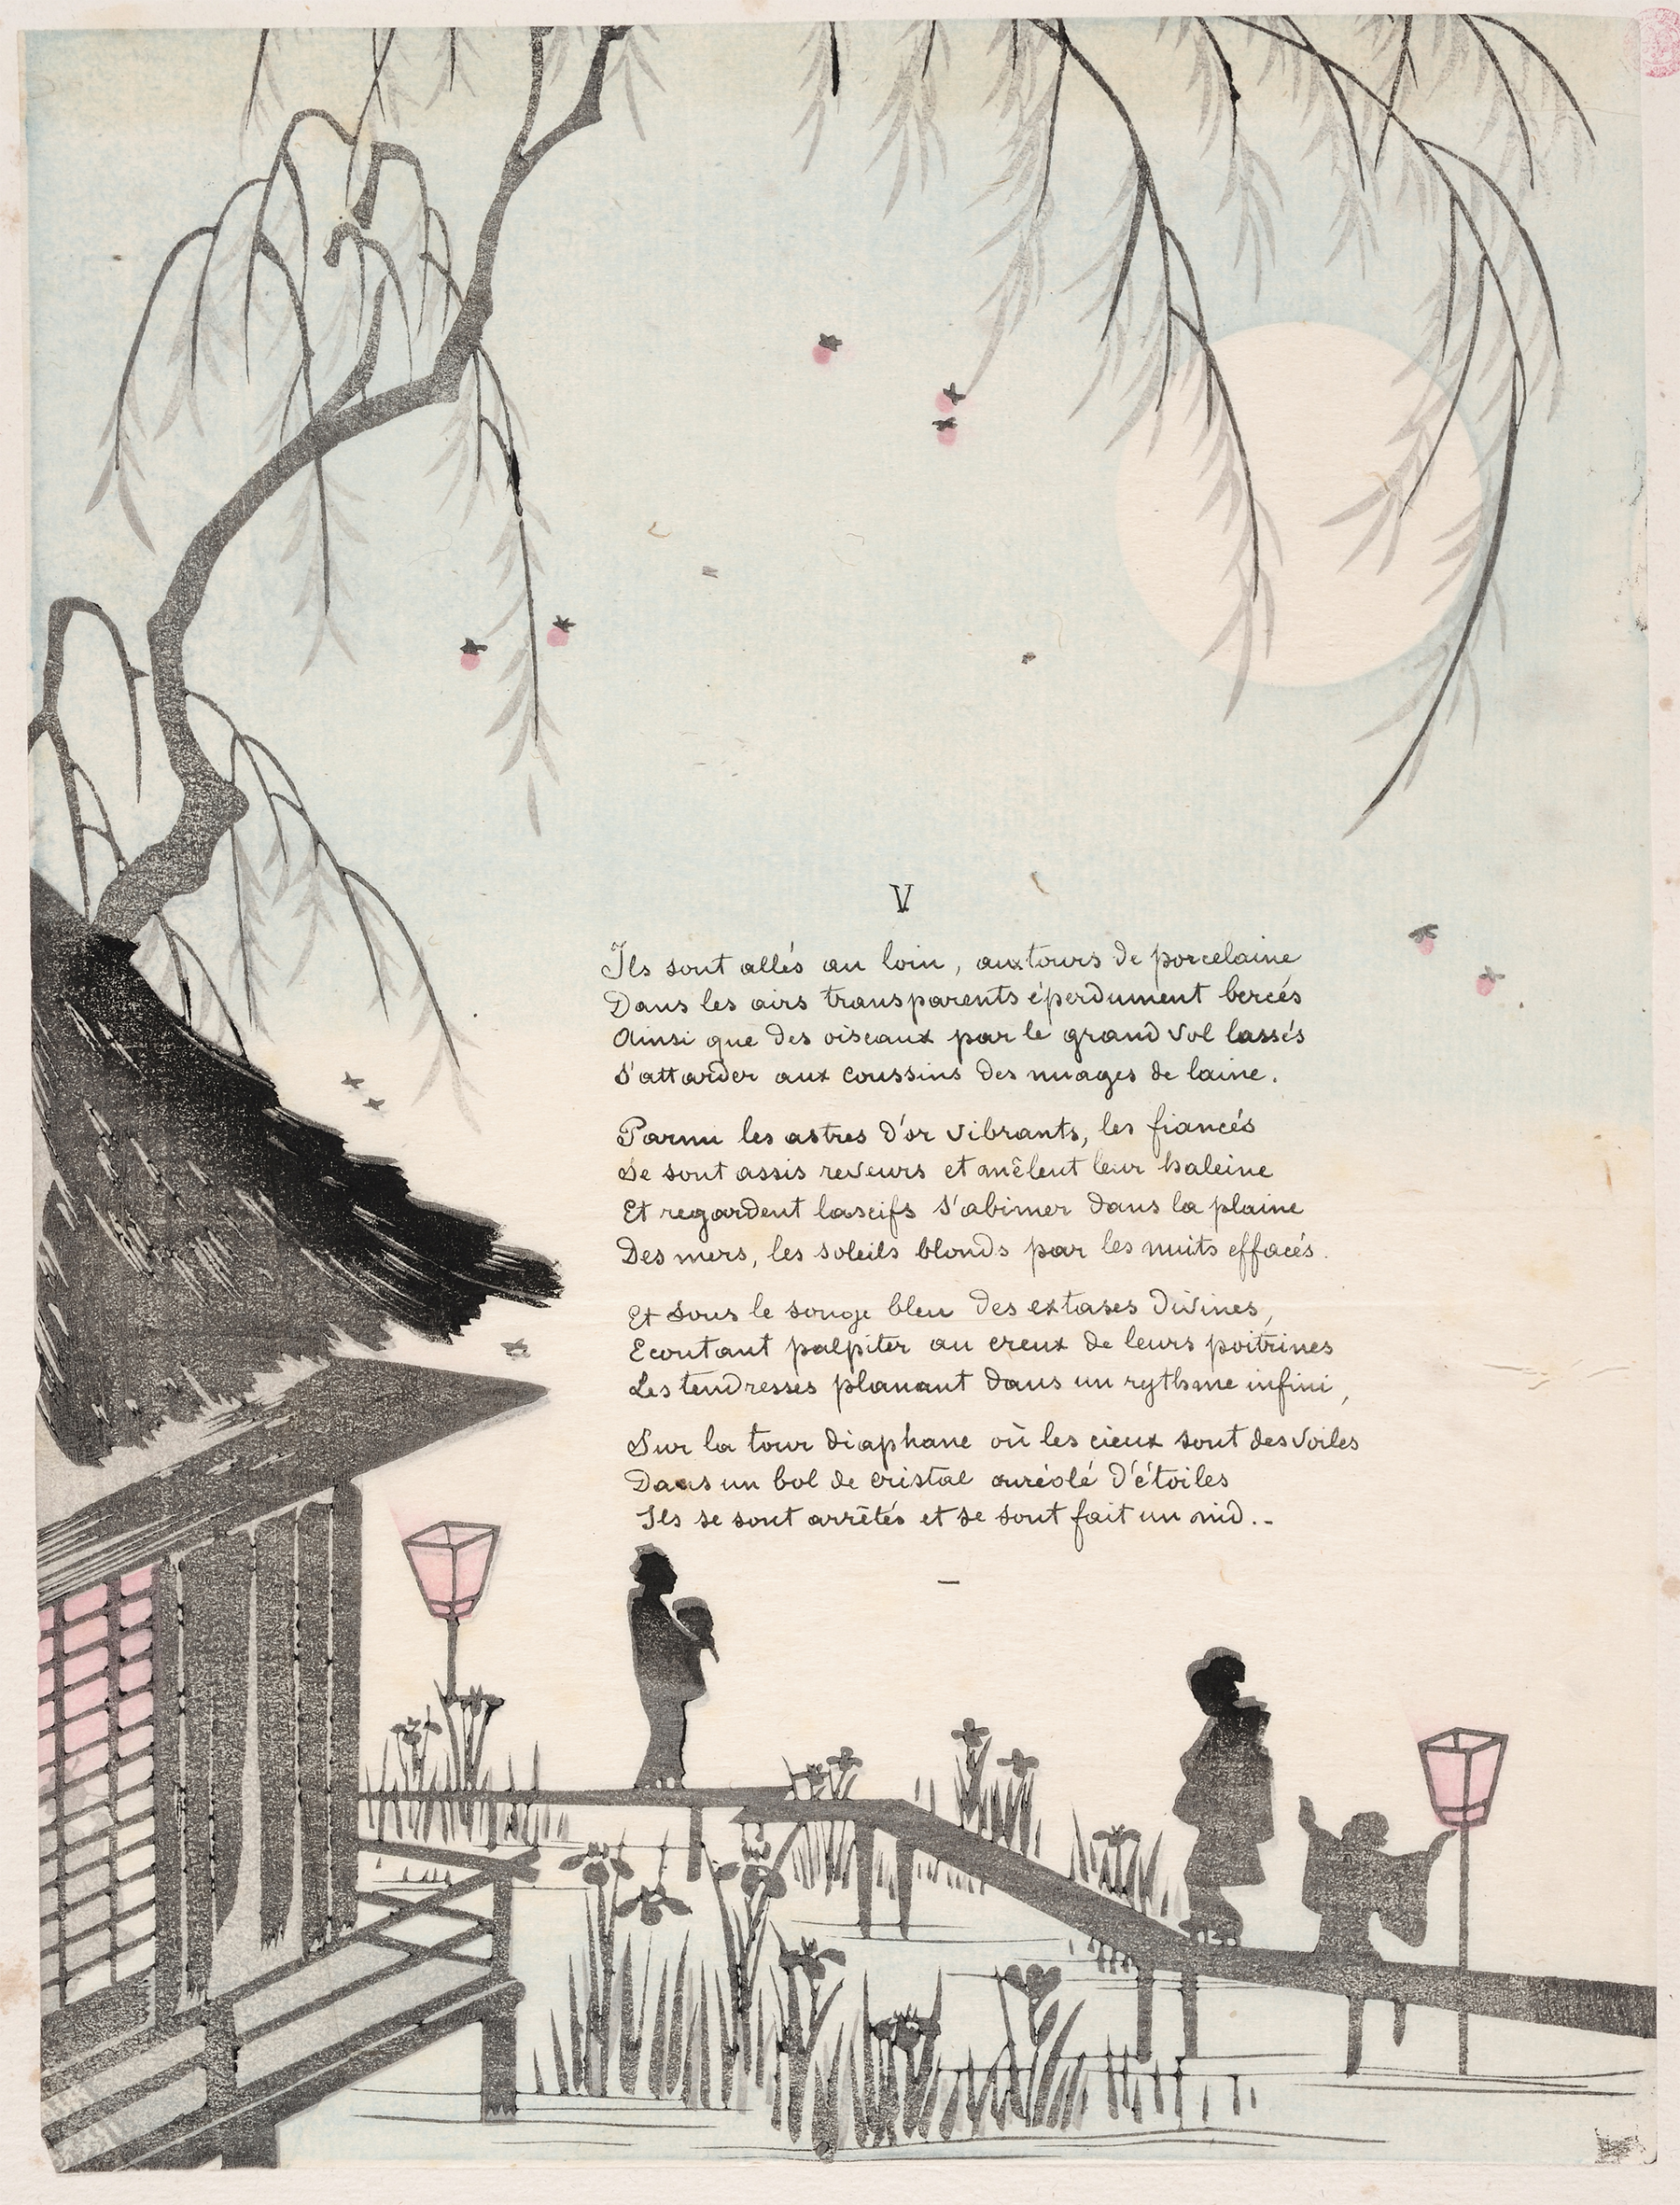 V
Ils sont allés au loin, aux tours de porcelaine
Dans les airs transparents éperdument bercés
Ainsi que des oiseaux par le grand vol lassés
S'attarder aux coussins des nuages de laine.
Parmi les astres d'or vibrants, les fiancés
Se sont assis reveurs et mêlent leur haleine
Et regardent lascifs s'abimer dans la plaine
Des mers, les soleils blonds par les nuits effacés.
Et sous le songe bleu des extases divines,
Ecoutant palpiter au creux de leurs poitrines
Les tendresses planant dans un rythme infini,
Sur la tour diaphane où les cieux sont des voiles
Dans un bol de cristal auréolé d'étoiles
Ils se sont arrêtés et se sont fait un nid..